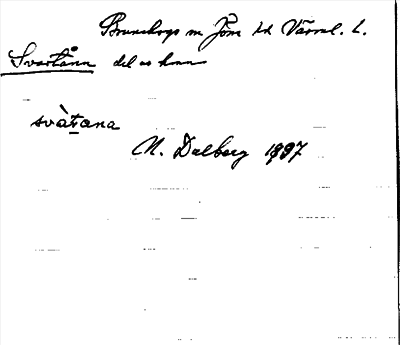 Brunskogs m Jösse hd Värml. l.
Svartånn del av hmn
svàtana
N. Dalberg 1897